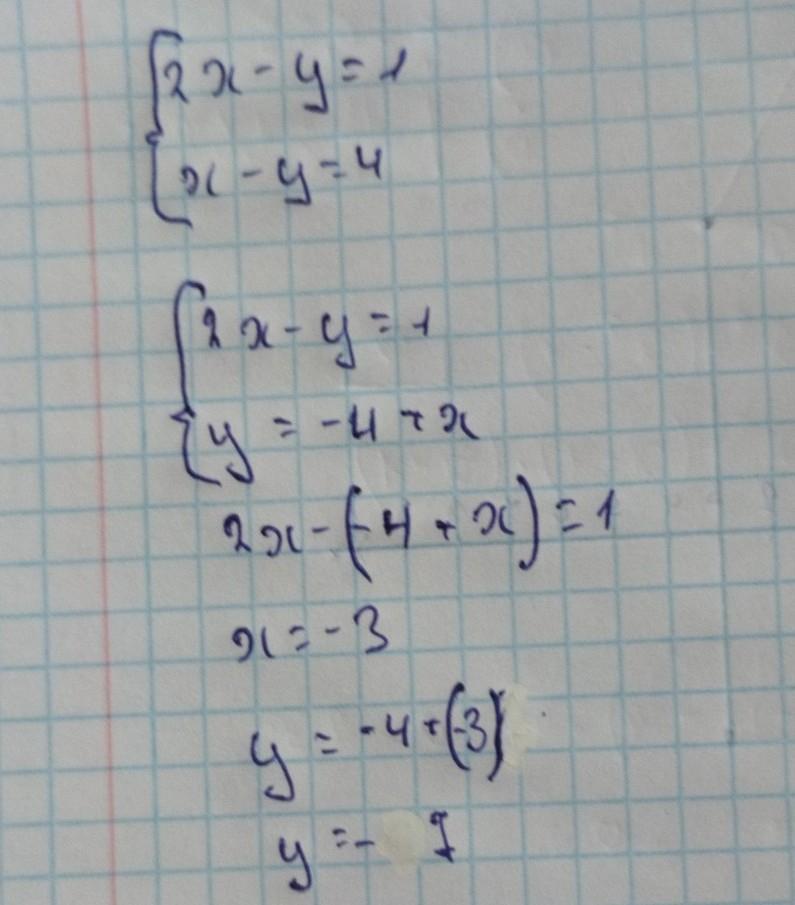 2x - y = 1
x - y = 4
2x - y = 1
y = -4 + x
2x - (-4 + x) = 1
x = -3
y = -4 + (-3)
y = - 7